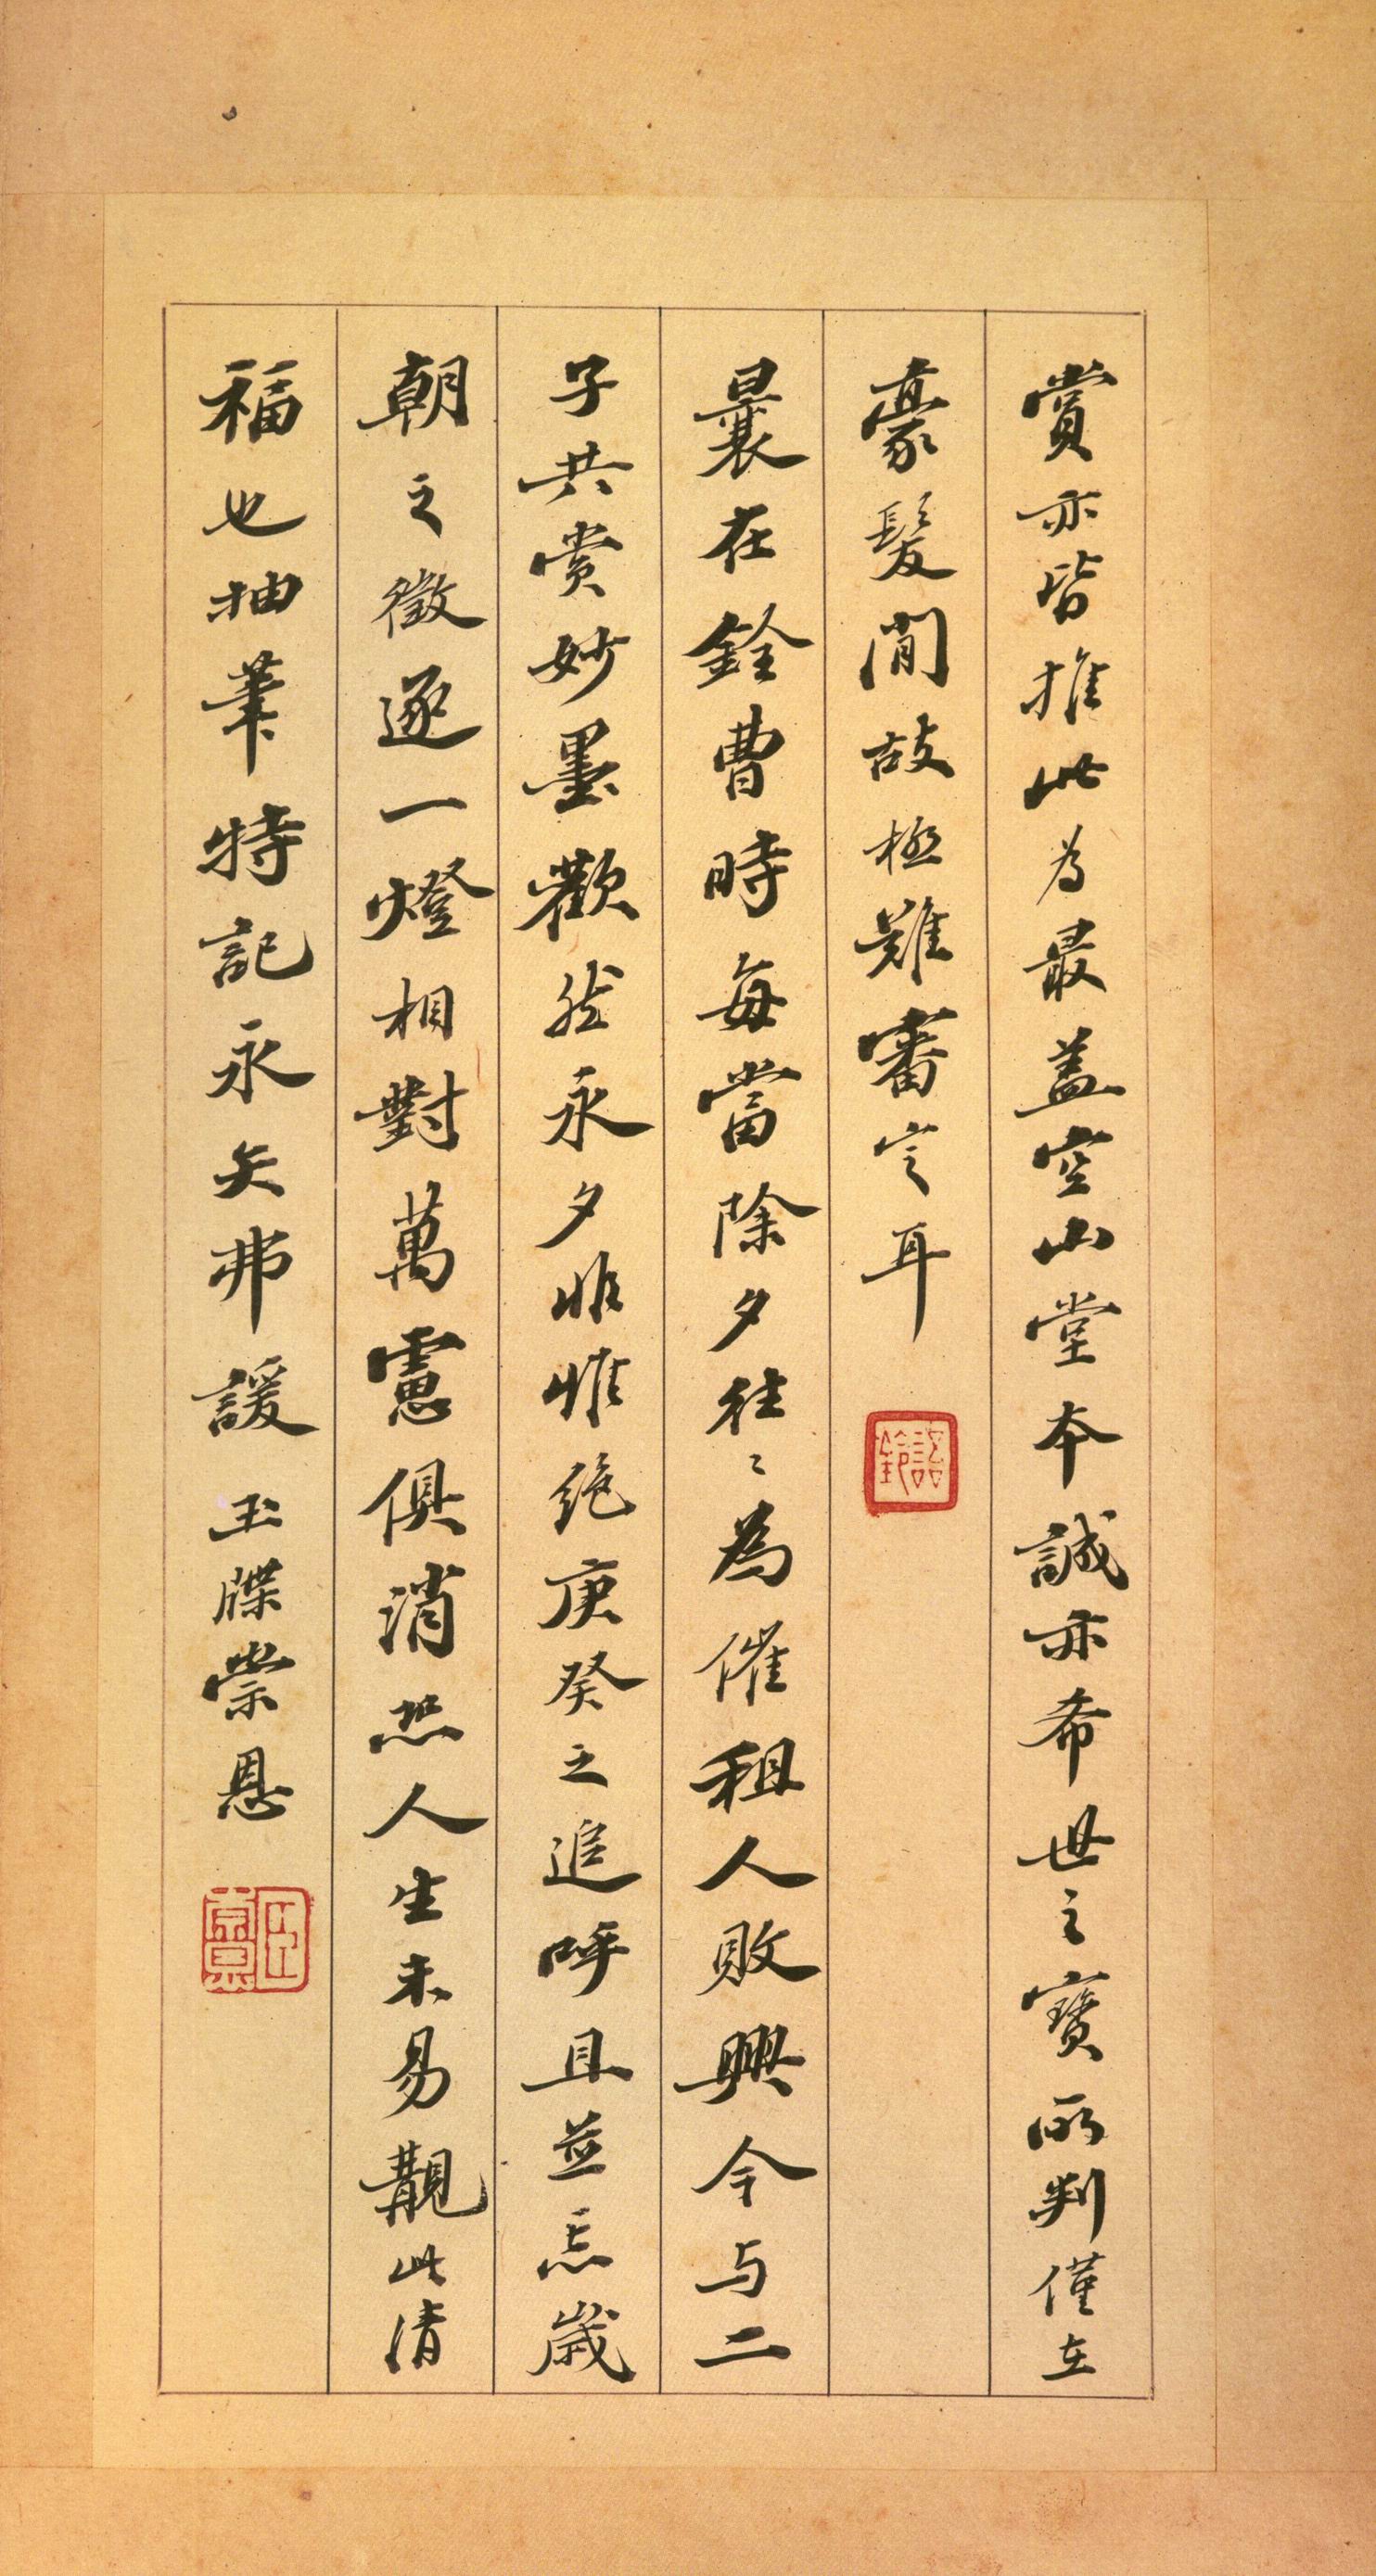 賞亦皆推此為最蓋空山堂本誠亦希世之寶所判僅在
豪髮間故極難審定耳
曩在銓曹時每當除夕往〻為催租人敗興今与二
子共赏妙墨歡然永夕非惟絕庚癸之追呼且並忘歲
朝之徵逐一燈相對萬慮俱消然人生未易覯此清
福也抽筆特記永矢弗諼 玉牒崇恩